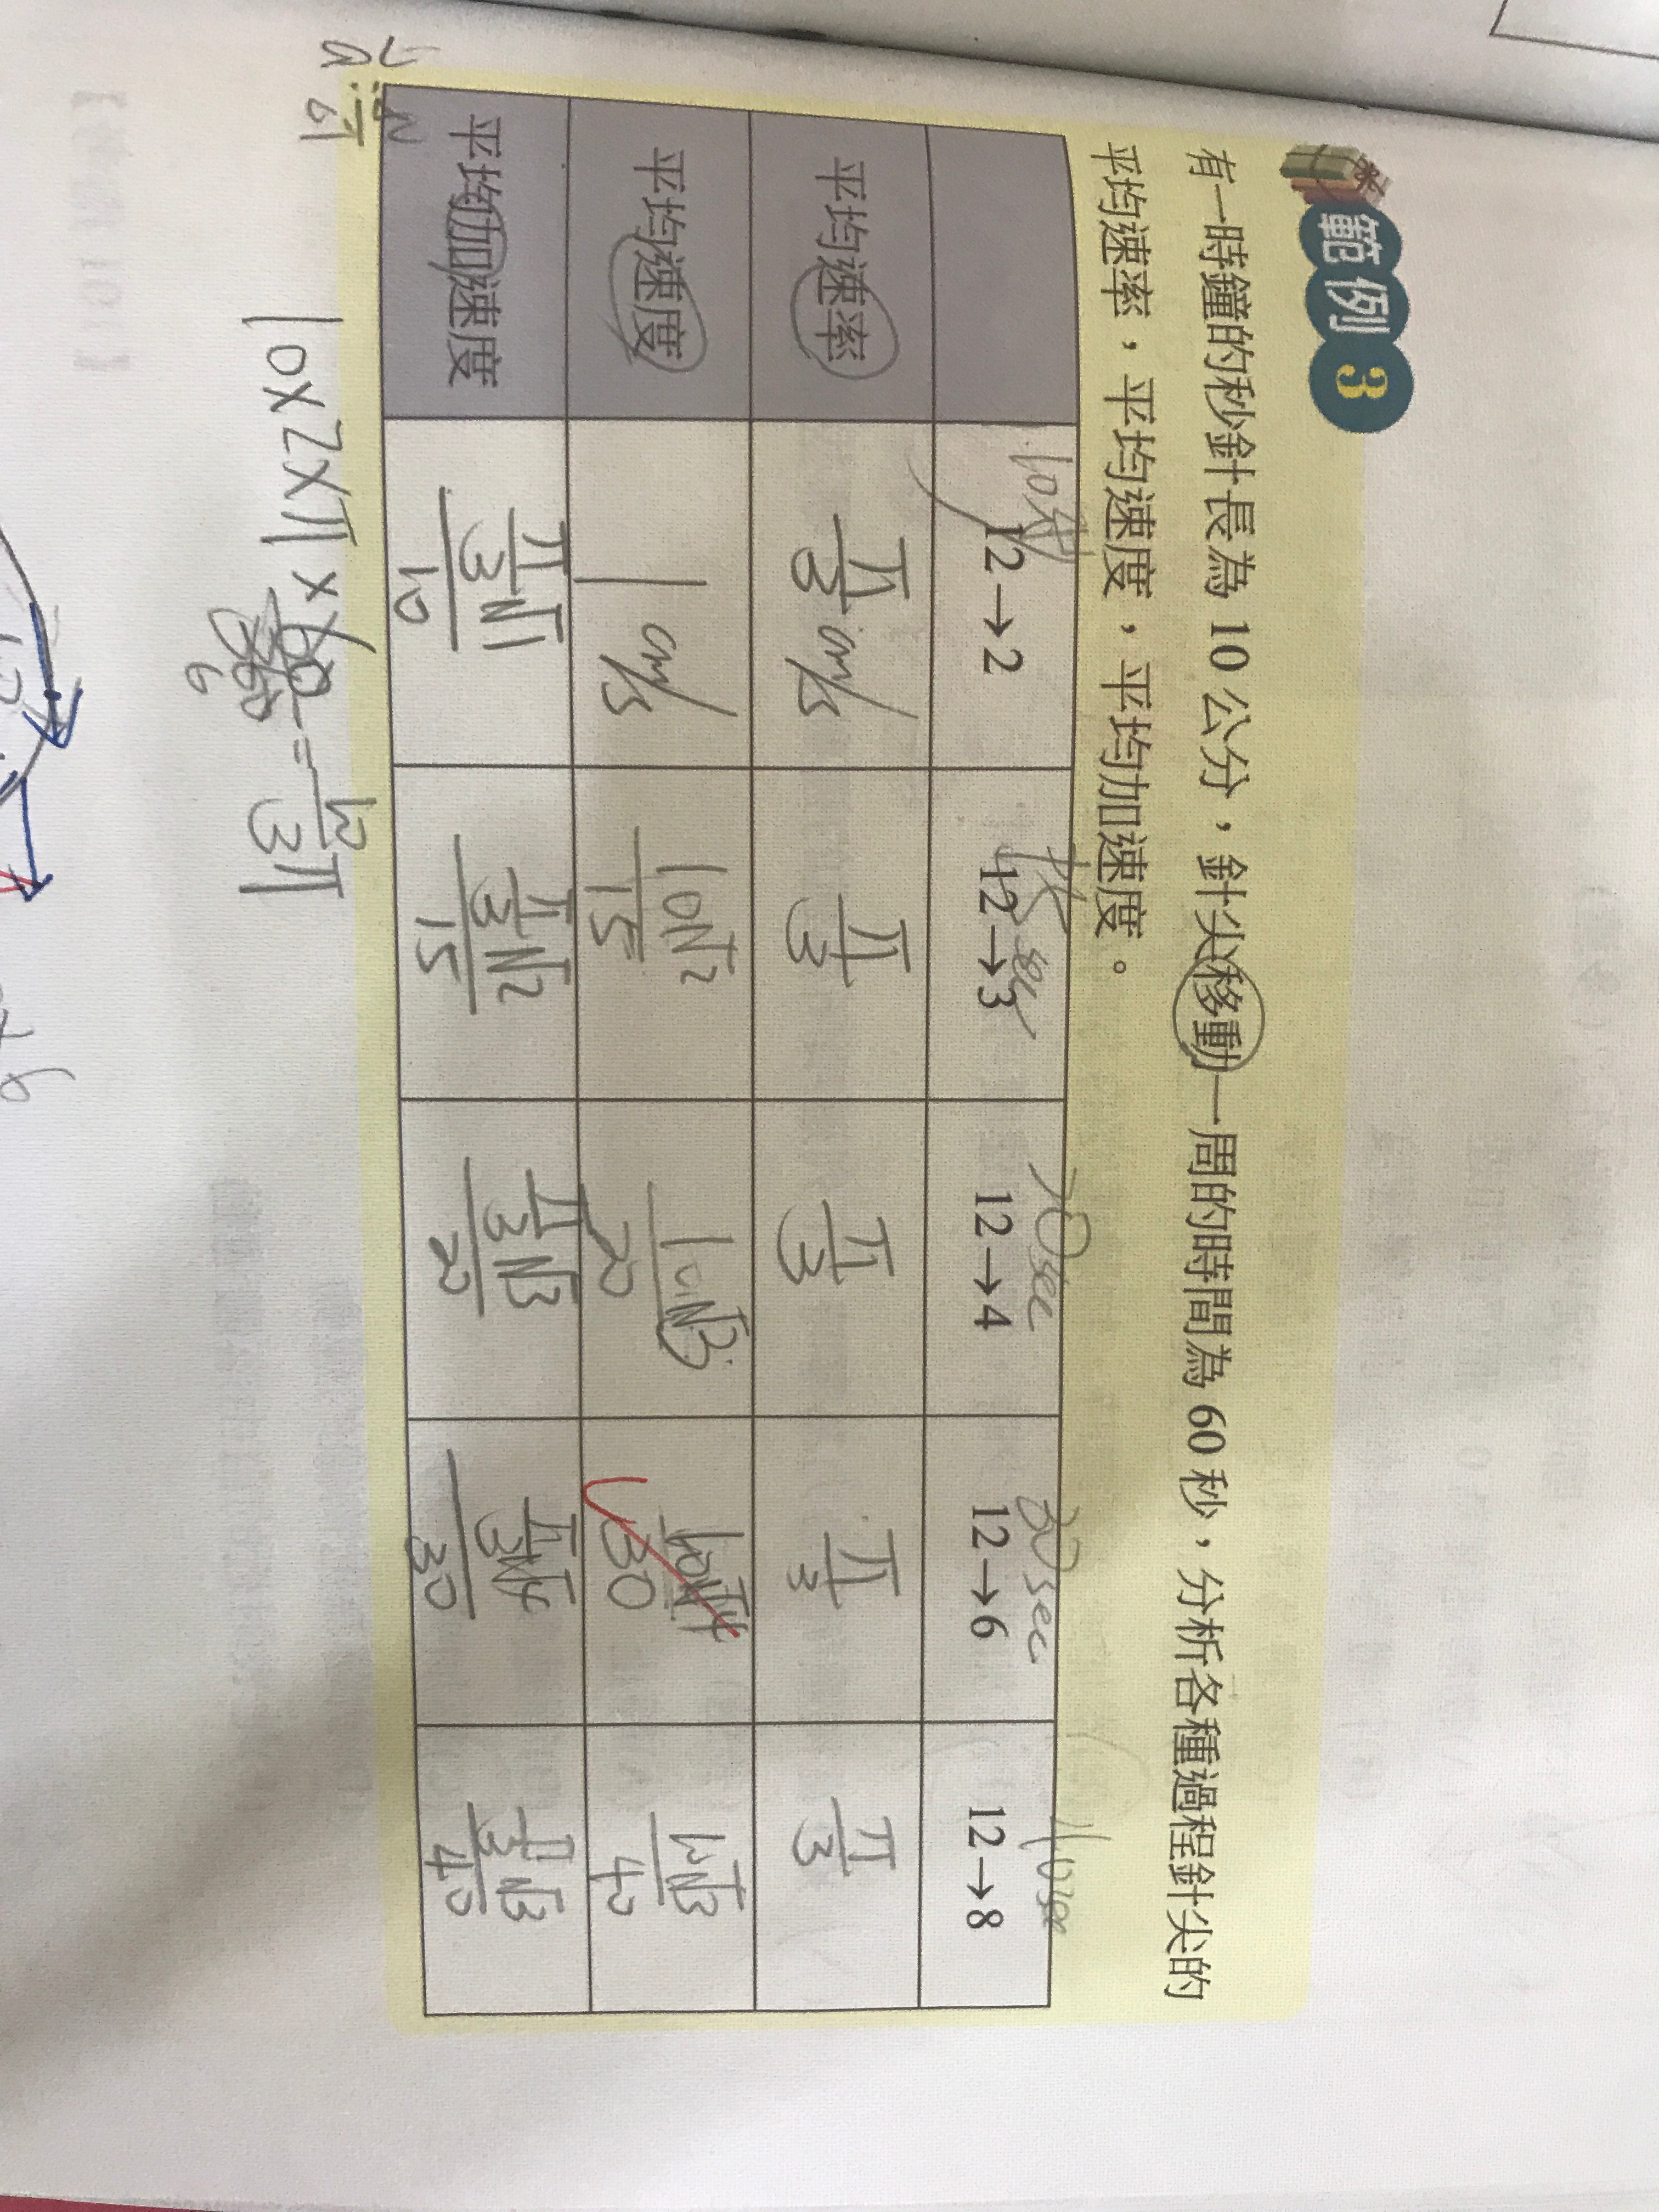 範例 3
有一時鐘的秒針長為 10 公分，針尖移動一周的時間為 60 秒，分析各種過程針尖的
平均速率，平均速度，平均加速度。
20sec 30sec
12→2 12→3 12→4 12→6 12→8
平均速率 π/3 cm/s π/3 π/3 π/3 π/3
平均速度 1 cm/s 10√2/15 10√3/20 10√4/30 10√3/40
平均加速度 π/3√1/10 π/3√2/15 π/3√3/20 π/3√4/30 π/3√3/40
10×2×π×60/360=10/3π
6